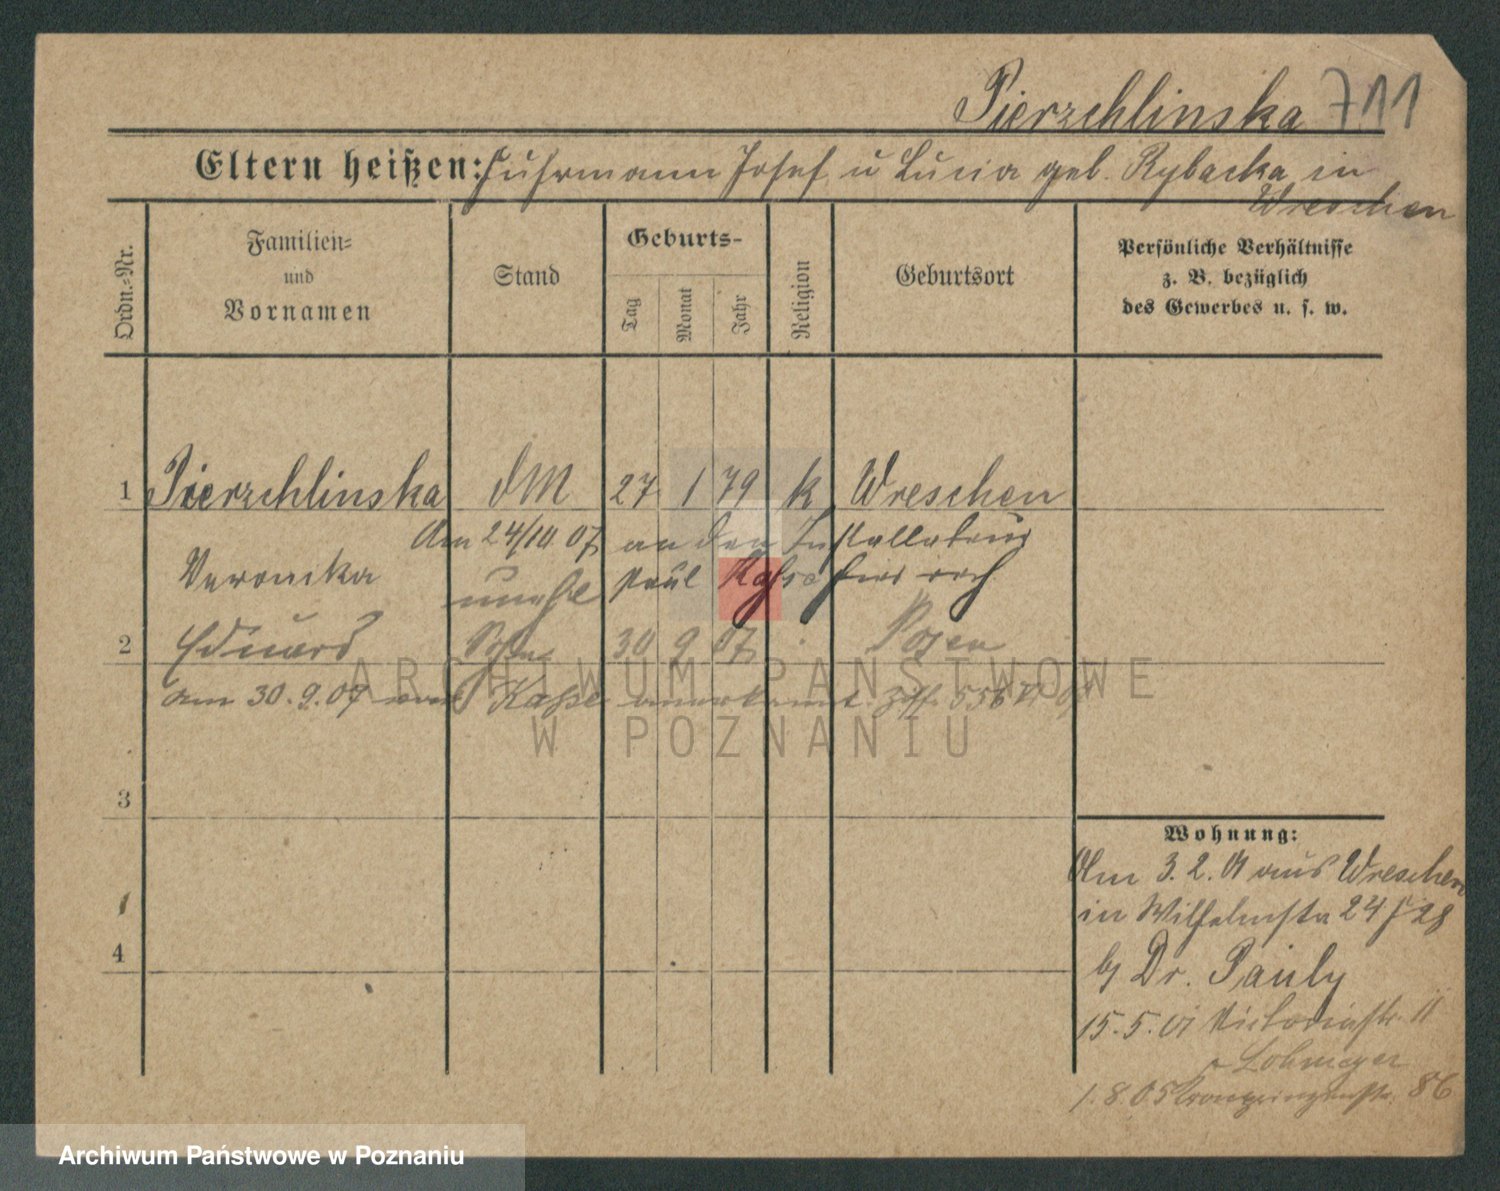 Pierzchlinska 711
Eltern heißen: Fuhrmann Josef u Lucia geb. Rybacka in
Wreschen
Ordn.-Nr.
Familien-
und
Vornamen
Stand
Geburts-
Tag
Monat
Jahr
Religion
Geburtsort
Persönliche Verhältnisse
z. B. bezüglich
des Gewerbes u. s. w.
1 Pierzchlinska dM 27 1 79 k Wreschen
Am 24/10 07 an den Installateur
Veronika unehl Paul
2 Eduard Sohn 30 9 07 Posen
am 30.9.07 anerkannt
3
4
Wohnung:
Am 3.2.01 aus Wreschen
in Wilhelmstr 24
b Dr. Pauly
15.5.01 Victoriastr. 11
Lohmeyer
1.8.05 Kronprinzenstr. 86
ARCHIWUM PAŃSTWOWE
W POZNANIU
Archiwum Państwowe w Poznaniu